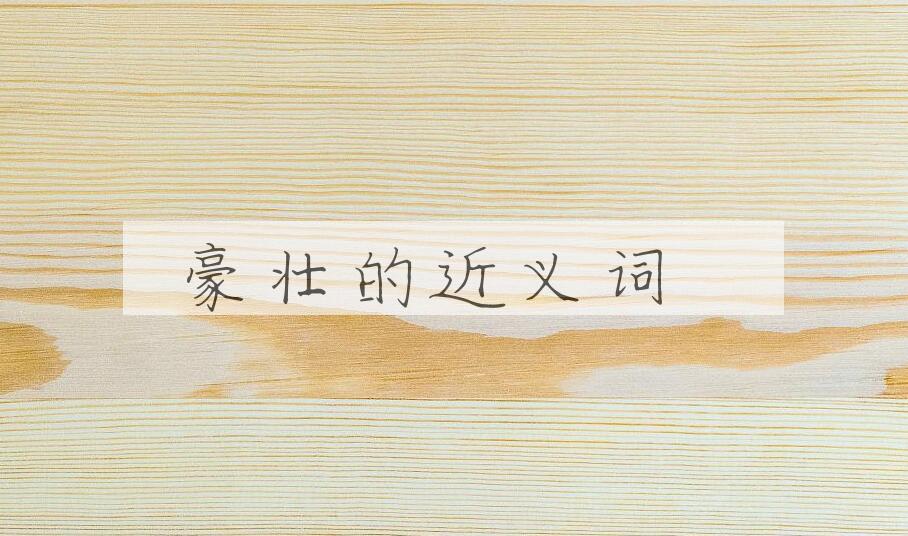 豪壮的近义词